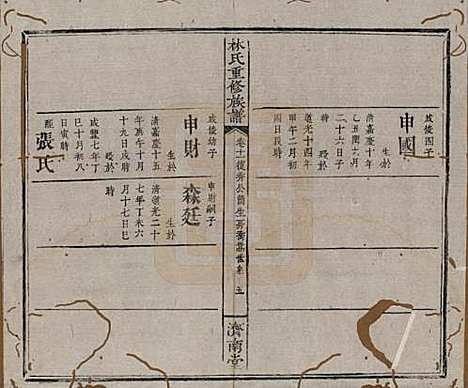 成俊四子
申國
生於
清嘉慶十年
乙丑閏六月
二十六日子
時 殁於
道光十四年
甲午二月初
四日辰時
林氏重修族譜
卷十一
五
濟南堂
成俊幼子
申財
生於
清嘉慶十五
年庚午十月
十九日戌時
殁於
咸豐七年丁
巳十月初八
日寅時
張氏
申財嗣子
森廷
生於
清道光二十
七年丁未六
月十七日巳
時